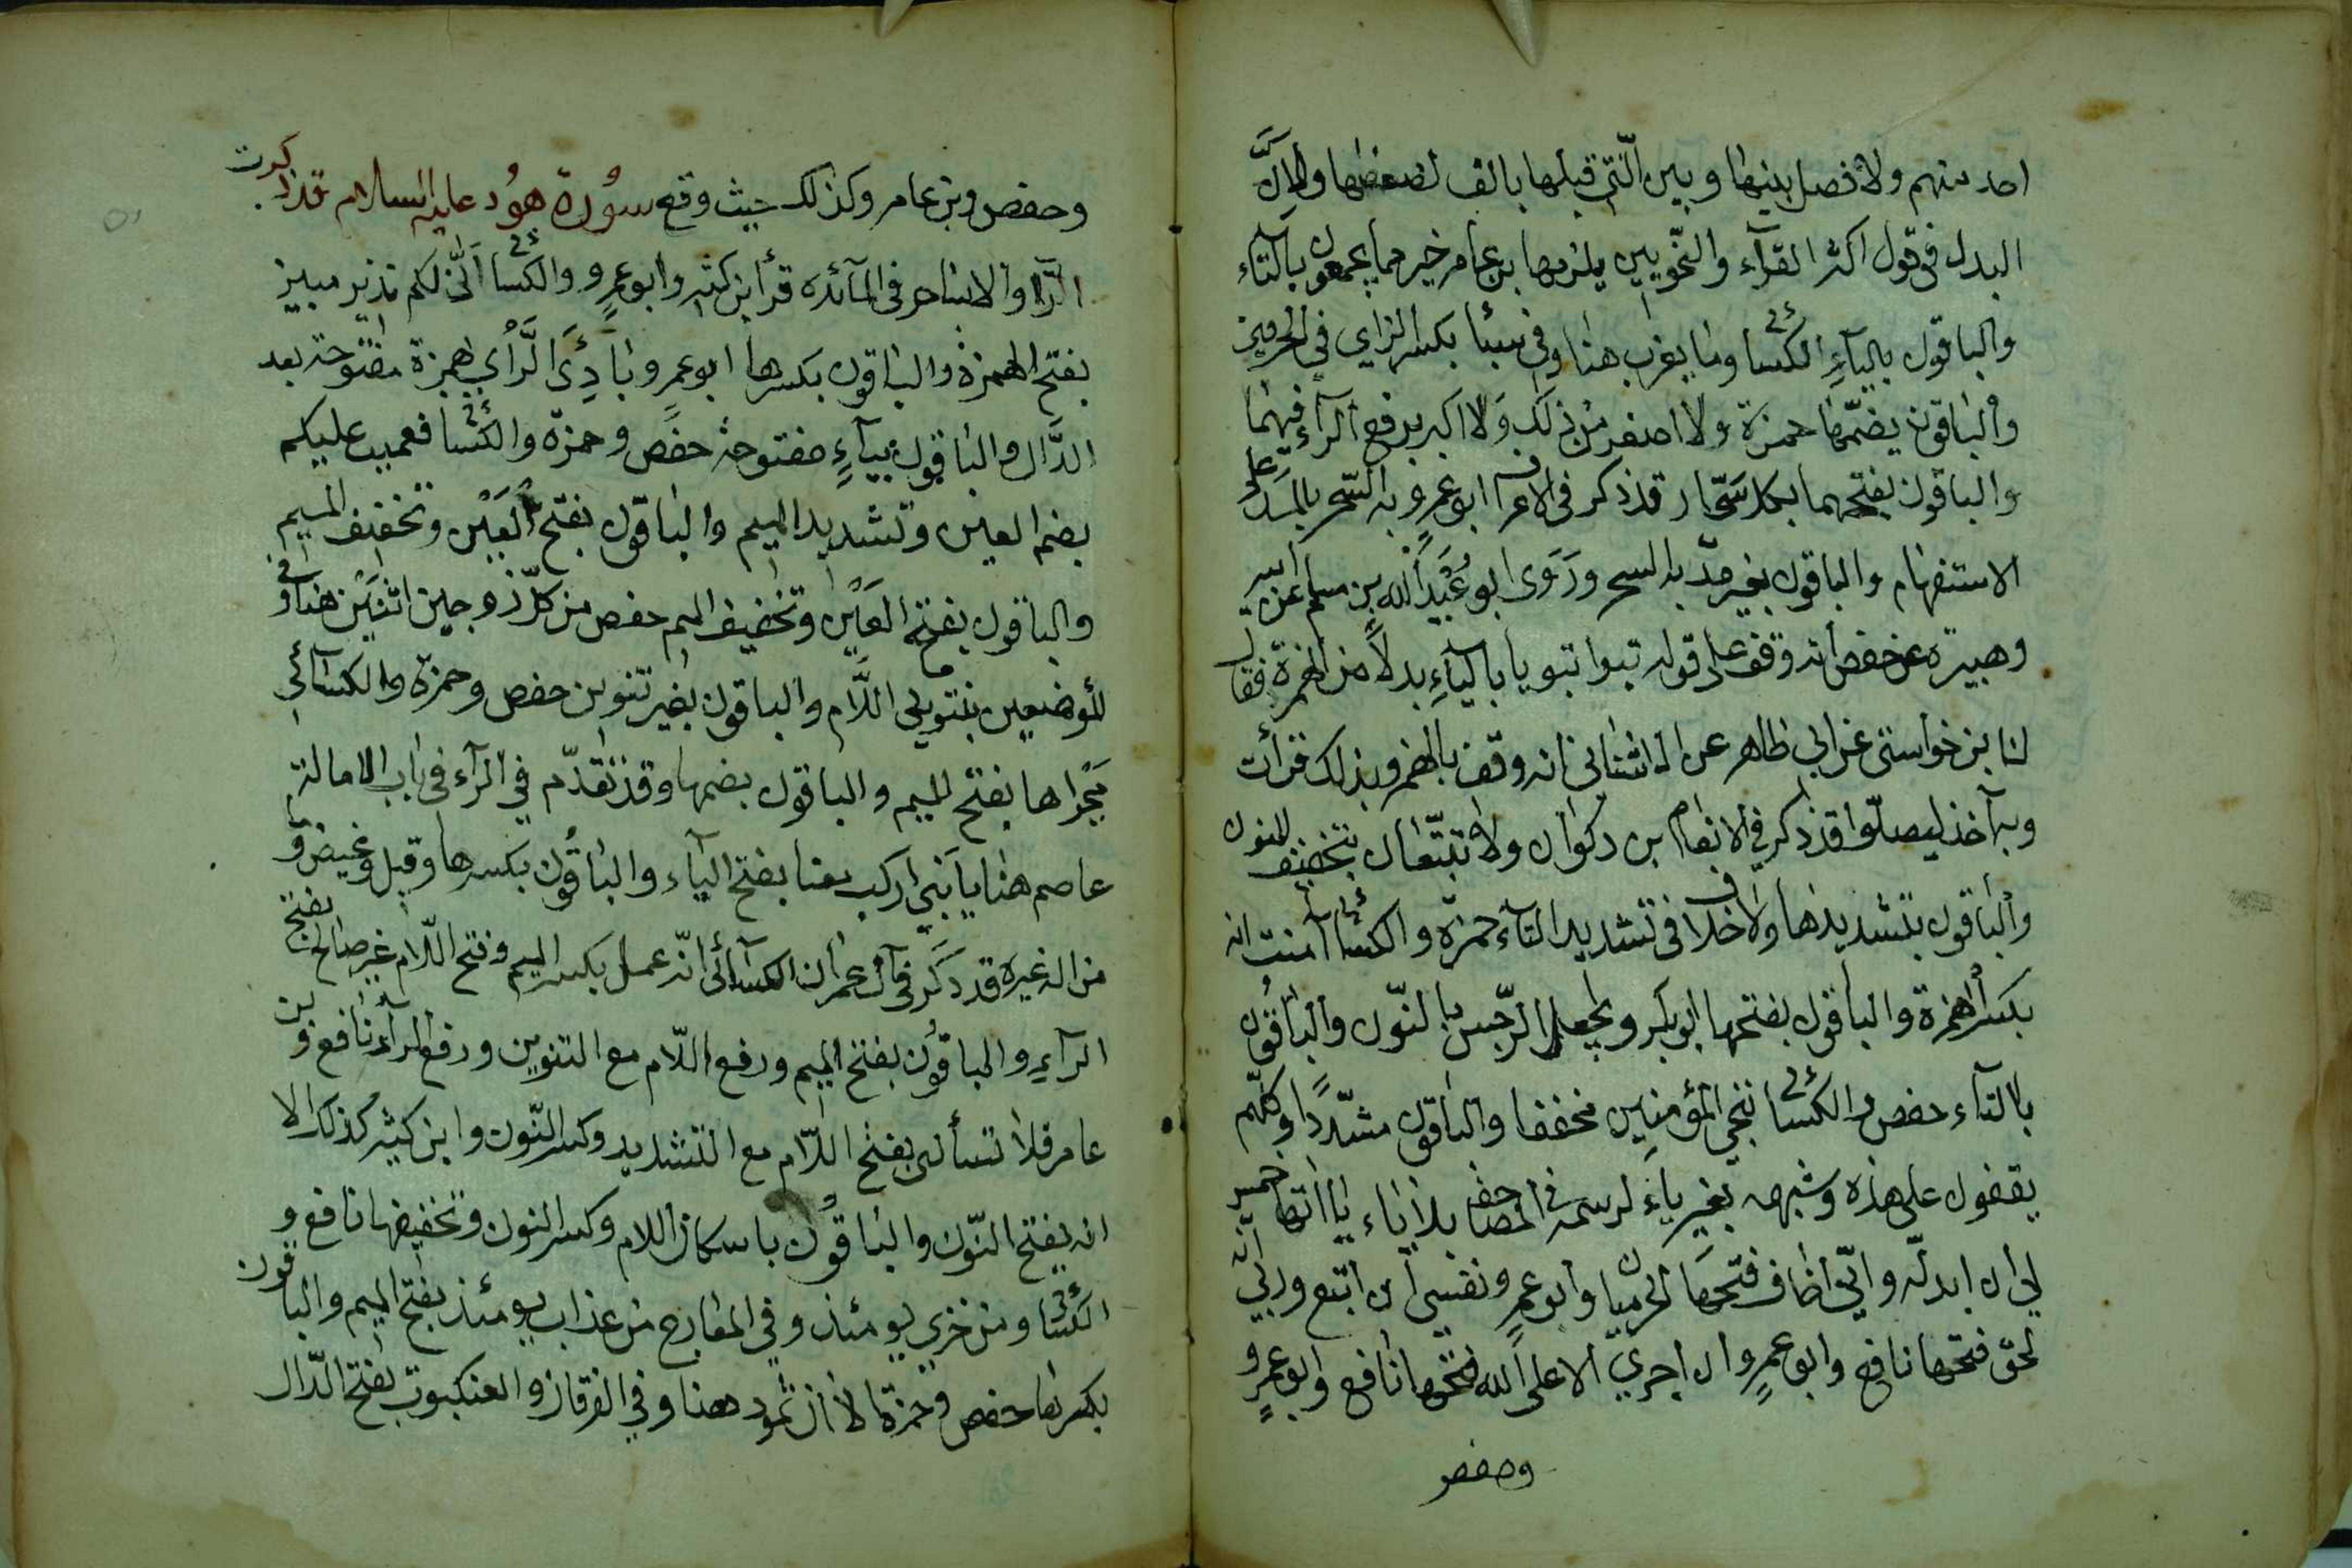 احد منهم ولا فصل بينها وبين الّتي قبلها بالف لضعفها ولانّ
البدل في قول اكثر القرّآء والنّحويين يلزمها بن عامر خير مما يجمعون بالتآء
والباقون باليآءِ الكسائي وما يعزب هنا وفي سبئا بكسر الزاي في الحرفين
والباقون بضمّها حمزة ولا اصغر من ذلك ولا اكبر برفع الرآء فيهما
والباقون بفتحهما بكل سحّار قد ذكر في الاعراف ابو عمرٍو به السّحر بالمد على
الاستفهام والباقون بغير مدّ به السحر وروى ابو عُبَيد الله بن مسلم عن ابيه
وهبيرة عن حفص أنه وقف على قوله تبوا تبويا باليآءِ بدلاً من الهمزة فقال
لنا بن خواستي عن ابي طاهر عن الاشناني انه وقف بالهمز وبذلك قرأت
وبه آخذ ليضلّوا قد ذكر في الانعام بن ذكوان ولا تتّبعان بتخفيف النون
والباقون بتشديدها ولا خلاف في تشديد التآء حمزة والكسائي آمنت انه
بكسر الهمزة والباقون بفتحها ابو بكر ونجعل الرّجس بالنّون والباقون
بالتاء حفص والكسائي ننجي المؤمنين مخففا والباقون مشدّدًا وكلّهم
يقفون على هذه وشبهه بغير ياءٍ لرسمه في المصاحف بلا ياء ياآتها خمس
لي ان ابدلّه وانّي اخاف فتحها الحرميان وابو عمرٍو ونفسي ان اتبع وربّي انه
لحق فتحها نافع وابو عمرٍو ان اجري الا على الله فتحها نافع وابو عمرٍو
وحفص
وحفص وبن عامر وكذلك حيث وقع سُورة هُود عليه السلام قد ذكرت
الرّا والا ساحر في المآئده قرأ ابن كثير وابو عمرٍو والكسائي انّي لكم نذير مبين
بفتح الهمزة والباقون بكسرها ابو عمرٍو بادِئَ الرَّأي بهمزة مفتوحة بعد
الدّال والباقون بيآءٍ مفتوحة حفص وحمزة والكسائي فعميت عليكم
بضم العين وتشديد الميم والباقون بفتح العَيْن وتخفيف الميم
والباقون بفتح العَيْن وتخفيف الميم حفص من كلّ زوجين اثنين هنا وفي
المؤمنين بتنوين اللّام والباقون بغير تنوين حفص وحمزة والكسائي
مَجْراها بفتح الميم والباقون بضمها وقد تقدّم في الرآء في باب الامالة
عاصم هنا يا بنيّ اركب معنا بفتح اليآء والباقُون بكسرها وقيل وغيض و
من اله غيره قد ذكر في آل عمران الكسآئي انّه عمل بكسر الميم وفتح اللّام غير صالح بفتح
الرآءِ والباقون بفتح الميم ورفع اللّام مع التنوين ورفع الرآء نافع وبن
عامر فلا تسألن بفتح اللّام مع التشديد وكسر النّون وابن كثير كذلك الا
انه يفتح النّون والباقُون باسكان اللام وكسر النون وتخفيفها نافع و
الكسائي ومن خزي يومئذ وفي المعارج من عذاب يومئذ بفتح الميم والباقون
بكسرها حفص وحمزة الا ان ثمود ههنا وفي الفرقان والعنكبوت بفتح الدّال